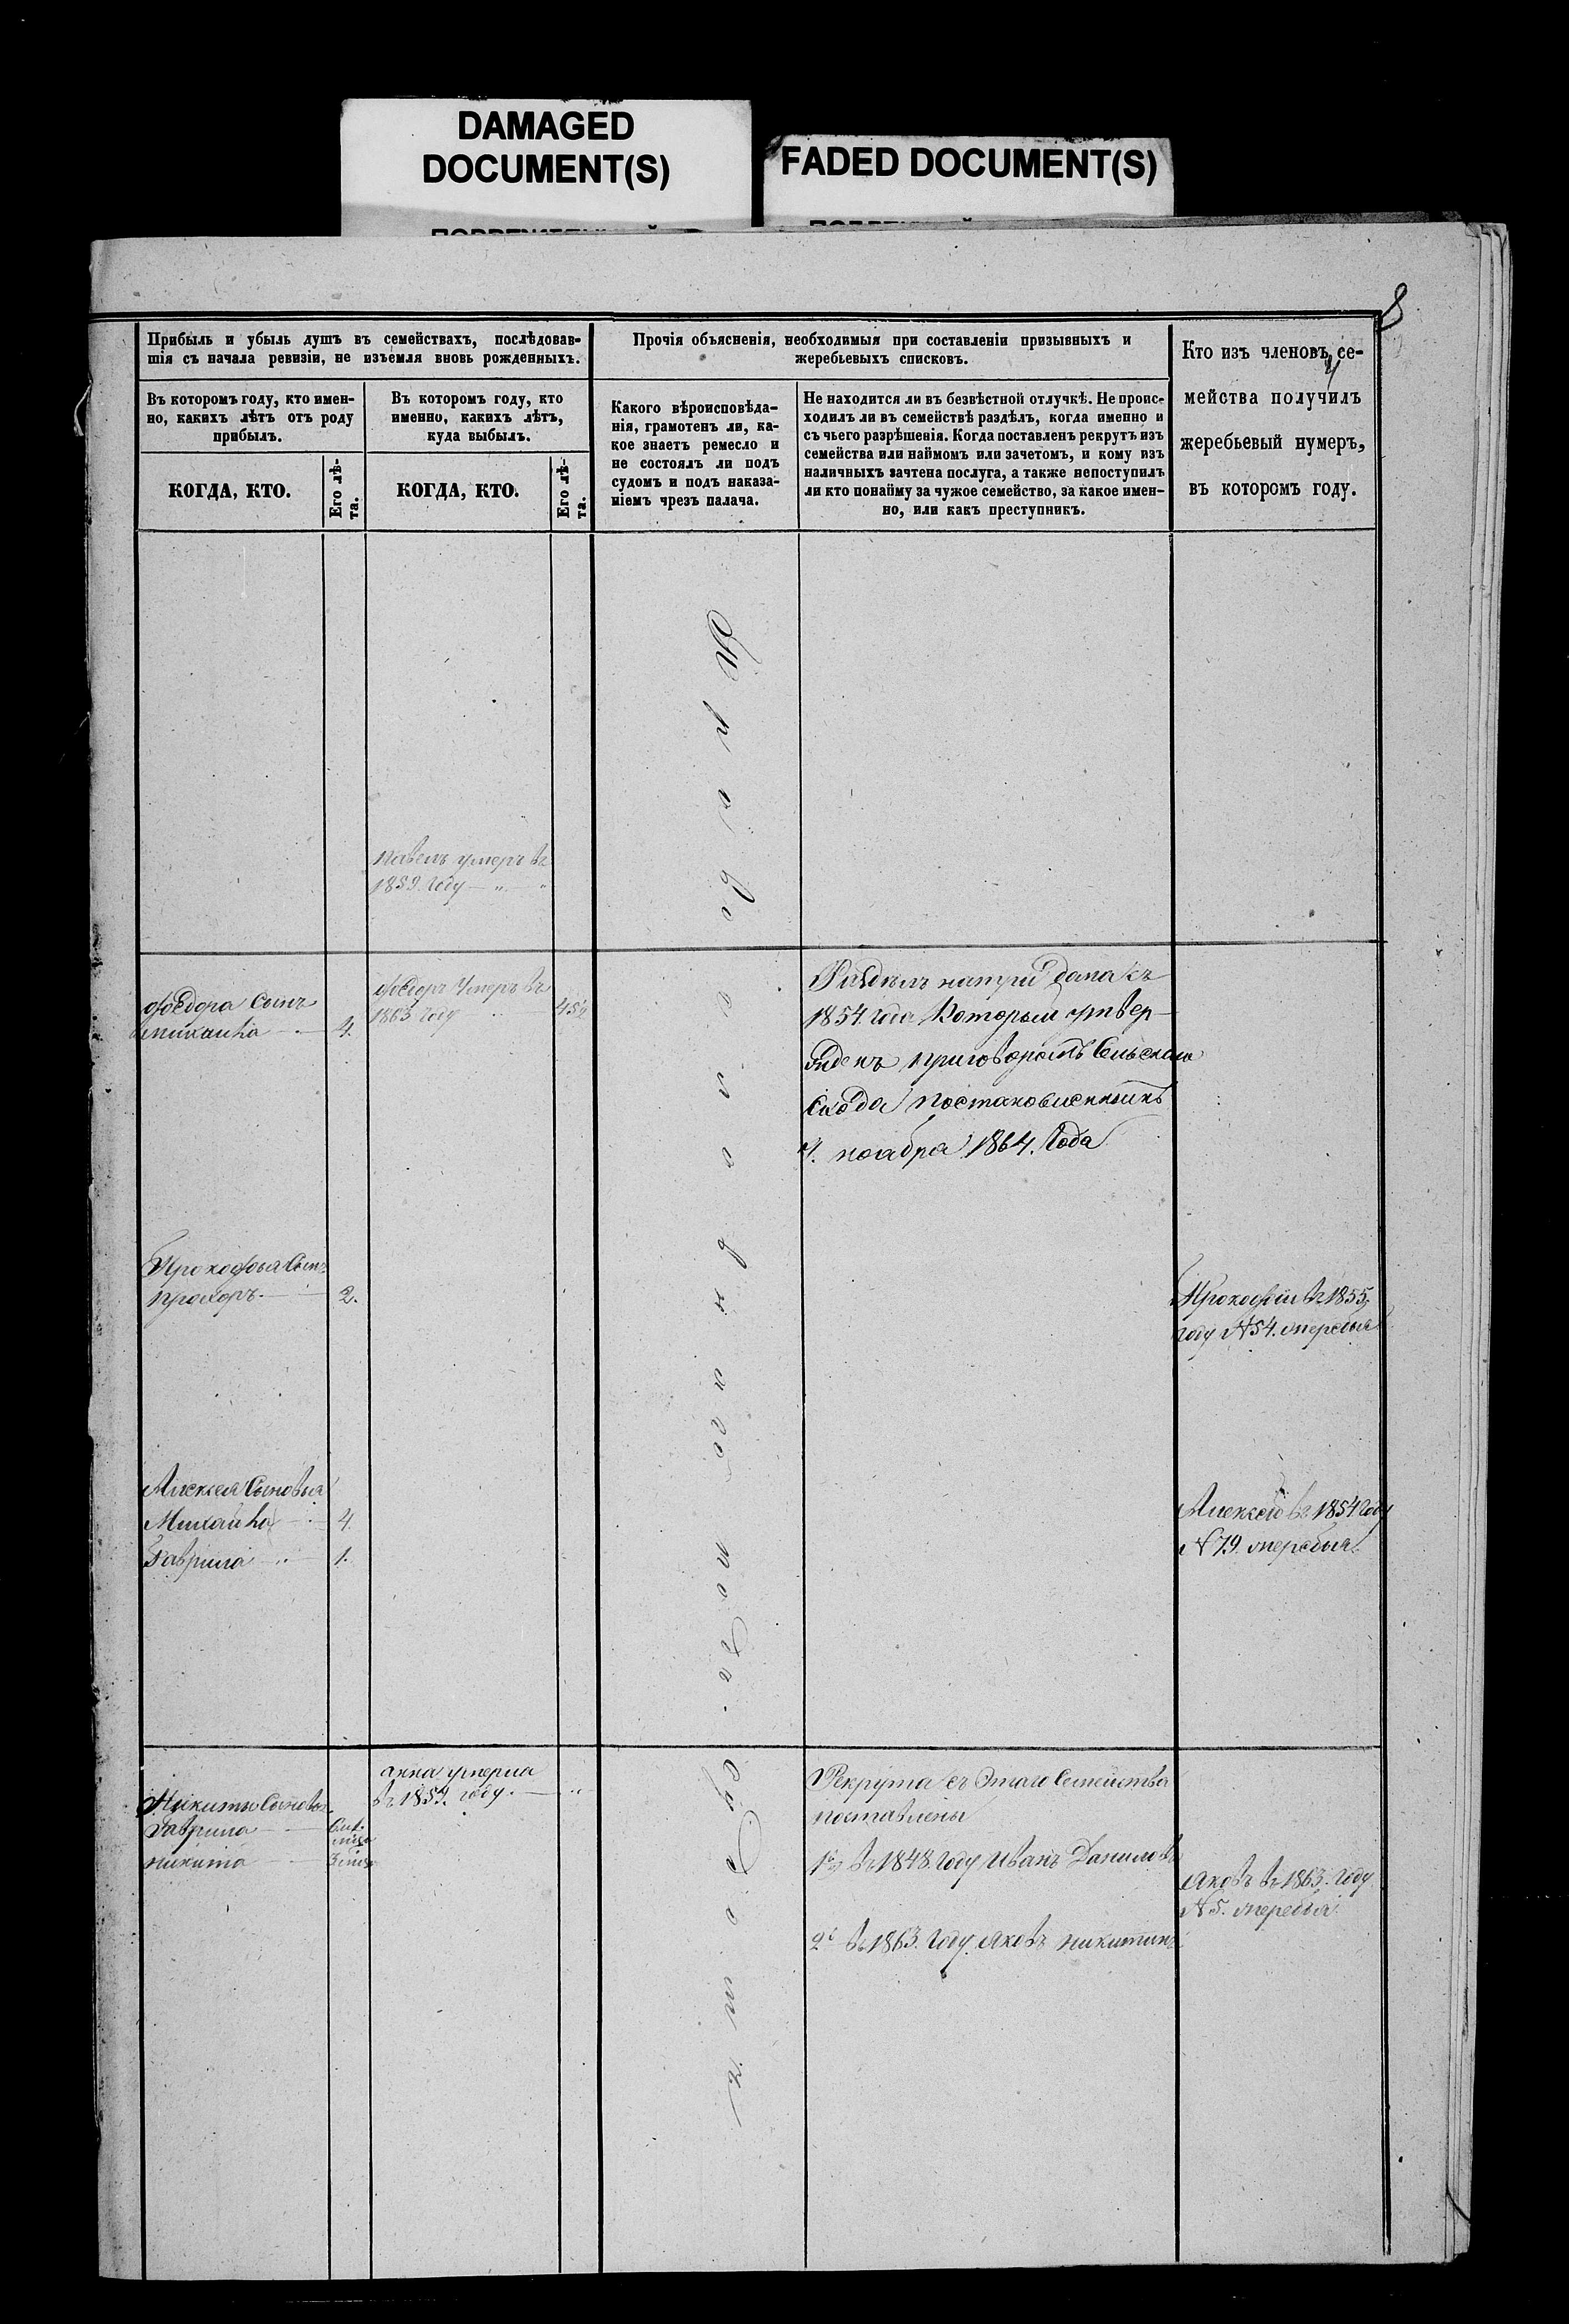 DAMAGED
DOCUMENT(S)
FADED DOCUMENT(S)
8
Прибыль и убыль душъ въ семействахъ, послѣдовав-
шія съ начала ревизіи, не изъемля вновь рожденныхъ.
Въ которомъ году, кто имен-
но, какихъ лѣтъ отъ роду
прибылъ.
КОГДА, КТО.
Его лѣ-
та.
Въ которомъ году, кто
именно, какихъ лѣтъ,
куда выбылъ.
КОГДА, КТО.
Его лѣ-
та.
Прочія объясненія, необходимыя при составленіи призывныхъ и
жеребьевыхъ списковъ.
Какого вѣроисповѣда-
нія, грамотенъ ли, ка-
кое знаетъ ремесло и
не состоялъ ли подъ
судомъ и подъ наказа-
ніемъ чрезъ палача.
Не находится ли въ безвѣстной отлучкѣ. Не проис-
ходилъ ли въ семействѣ раздѣлъ, когда именно и
съ чьего разрѣшенія. Когда поставленъ рекрутъ изъ
семейства или наймомъ или зачетомъ, и кому изъ
наличныхъ зачтена послуга, а также непоступилъ
ли кто понайму за чужое семейство, за какое имен-
но, или какъ преступникъ.
Кто изъ членовъ се-
мейства получилъ
жеребьевый нумеръ,
въ которомъ году.
павелъ умеръ въ
1859. году — " — "
Федора Сынъ
Михаила 4.
Федоръ Умеръ въ
1863 году 45½
Раздѣлъ натри дома съ
1854. года Который утвер-
жденъ приговоромъ Сельскаго
Схода постановленнымъ
4. ноября 1864. Года
Прокофья Сынъ
прохоръ. 2.
Прокофій въ 1855.
году №54. жеребья
Алексея Сыновья
Михайла 4.
Гаврила 1.
Алексей въ 1854 Году
№79. жеребья.
Никиты Сыновья
Гаврила
никита
анна умерла
въ 1859. году. — "
Рекрута съ Этаго Семейства
поставлены
1й въ 1848. Году Иванъ Даниловъ
2й въ 1863. Году. Яковъ никитинъ
Яковъ въ 1863. году
№5. жеребья.